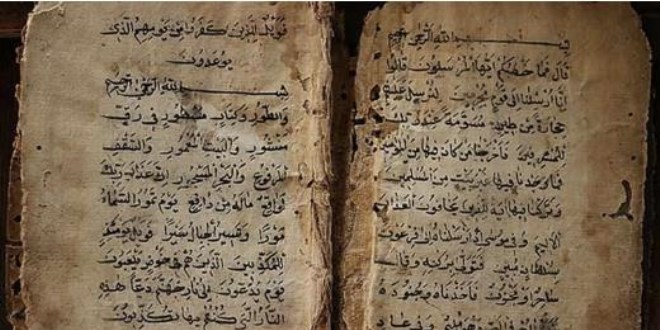 بسم الله الرحمن الرحيم
قال فما خطبكم ايها المرسلون قالوا
انا ارسلنا الى قوم مجرمين لنرسل عليهم
حجارة من طين مسومة عند ربك
للمسرفين فاخرجنا من كان فيها من المؤمنين
فما وجدنا فيها غير بيت من المسلمين
وتركنا فيها اية للذين يخافون العذاب
الاليم وفي موسى اذ ارسلناه الى فرعون
بسلطان مبين فتولى بركنه وقال
ساحر او مجنون فاخذناه وجنوده
وفي عاد
فويل للذين كفروا من يومهم الذي
يوعدون
بسم الله الرحمن الرحيم
والطور وكتاب مسطور في رق
منشور والبيت المعمور والسقف
المرفوع والبحر المسجور ان عذاب ربك
لواقع ماله من دافع يوم تمور السماء
مورا وتسير الجبال سيرا فويل يومئذ
للمكذبين الذين هم في خوض يلعبون
يوم يدعون الى نار جهنم دعا هذه
النار التي كنتم بها تكذبون